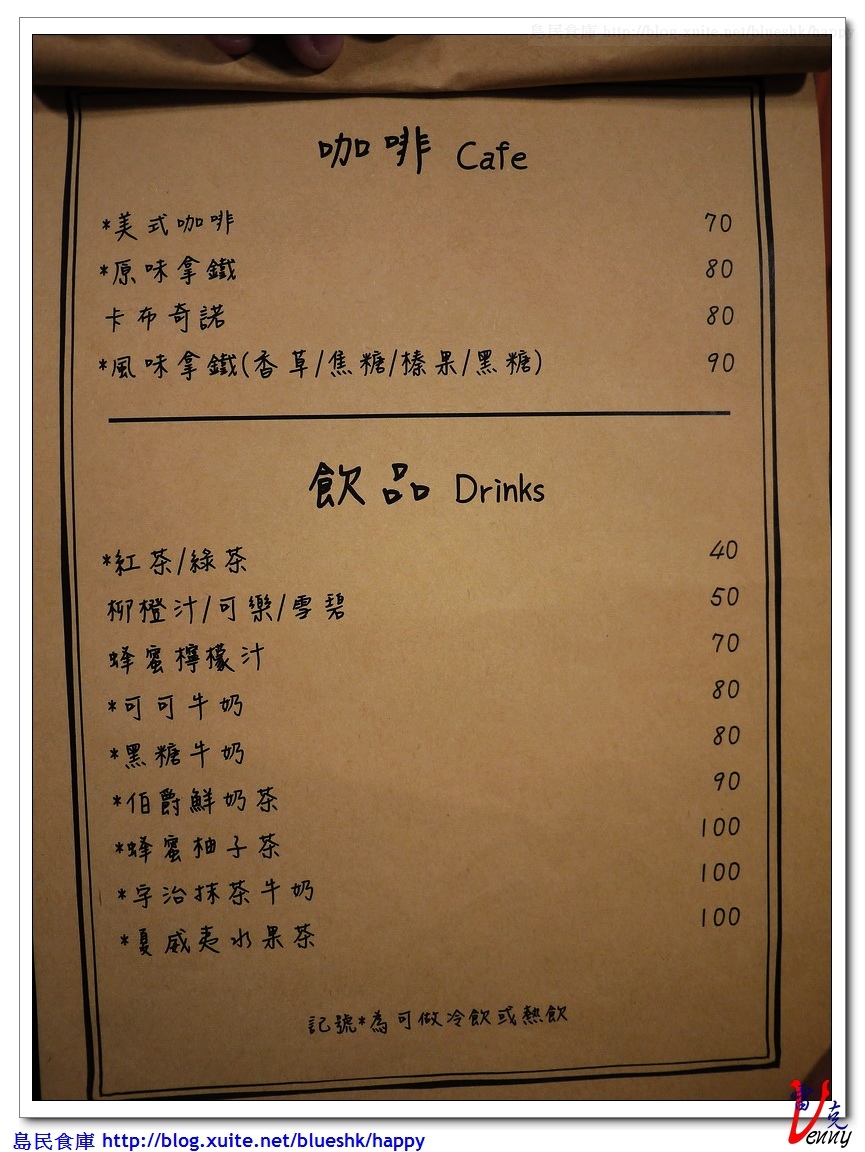 島民食庫 http://blog.xuite.net/blueshk/happy
咖啡 Cafe
*美式咖啡 70
*原味拿鐵 80
卡布奇諾 80
*風味拿鐵(香草/焦糖/榛果/黑糖) 90
飲品 Drinks
*紅茶/綠茶 40
柳橙汁/可樂/雪碧 50
蜂蜜檸檬汁 70
*可可牛奶 80
*黑糖牛奶 80
*伯爵鮮奶茶 90
*蜂蜜柚子茶 100
*宇治抹茶牛奶 100
*夏威夷水果茶 100
記號*為可做冷飲或熱飲
雷克
Venny
島民食庫 http://blog.xuite.net/blueshk/happy